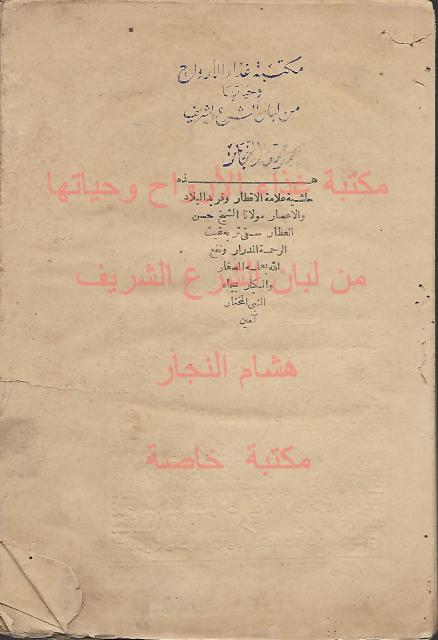 مكتبة غذاء الأرواح
وحياتها
من لبان الشرع الشريف
هـذه
مكتبة غذاء الأرواح وحياتها
حاشية علامة الاقطار وفريد البلاد
والاعصار مولانا الشيخ حسن
العطار سقى تربه غيث
الرحمة المدرار ونفع
الله بعلمه الصغار
من لبان الشرع الشريف
والكبار بجاه
النبي المختار
آمين
هشام النجار
مكتبة خاصة